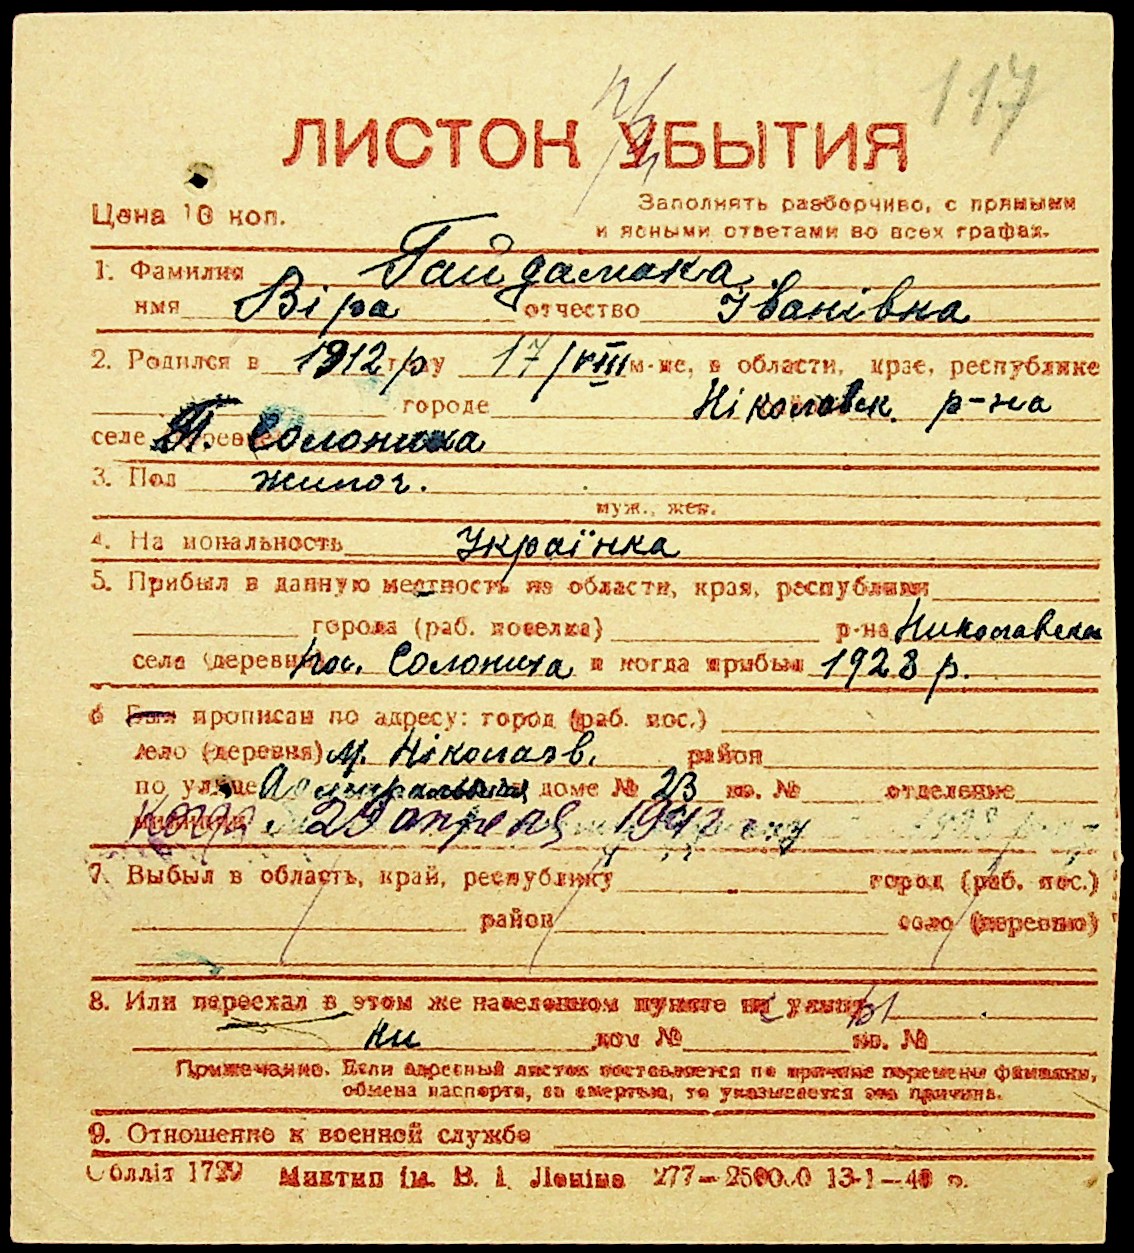 117
ЛИСТОК УБЫТИЯ
Цена 10 коп.
Заполнять разборчиво, с прямыми
и ясными ответами во всех графах.
1. Фамилия Гайдамака
имя Віра отчество Іванівна
2. Родился в 1912/р году 17/VIII м-це, в области, крае, республике
городе Ніколаевск. р-на
селе П. Солониха
3. Пол жиноч.
муж., жен.
4. Национальность Українка
5. Прибыл в данную местность из области, края, республики
города (раб. поселка) р-на Николаевско
села (деревни) пос. Солониха и когда прибыл 1928 р.
6 Был прописан по адресу: город (раб. пос.)
село (деревня) м. Ніколаэв. район
по улице Адміральській доме № 23 кв. № отделение
милиции Когда 29 апреля 1942 году
7. Выбыл в область, край, республику город (раб. пос.)
район село (деревню)
8. Или переехал в этом же населенном пункте на улицу
ни дом № кв. №
Примечание. Если адресный листок составляется по причине перемены фамилии,
обмена паспорта, за смертью, то указывается эта причина.
9. Отношение к военной службе
Облліт 1729 Миктип ім. В. І. Леніна 277—250000 13-1—40 р.